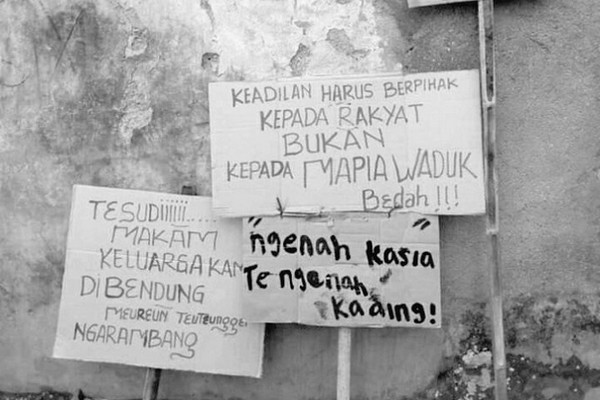 KEADILAN HARUS BERPIHAK
KEPADA RAKYAT
BUKAN
KEPADA MAPIA WADUK
Bedah !!!
TESUDiiiiii.....
MAKAM
KELUARGA KAN
DiBENDUNG
MEUREUN TEUTEUNGGEL
NGARAMBANG
"ngenah kasia
Te ngenah
kaaing!"